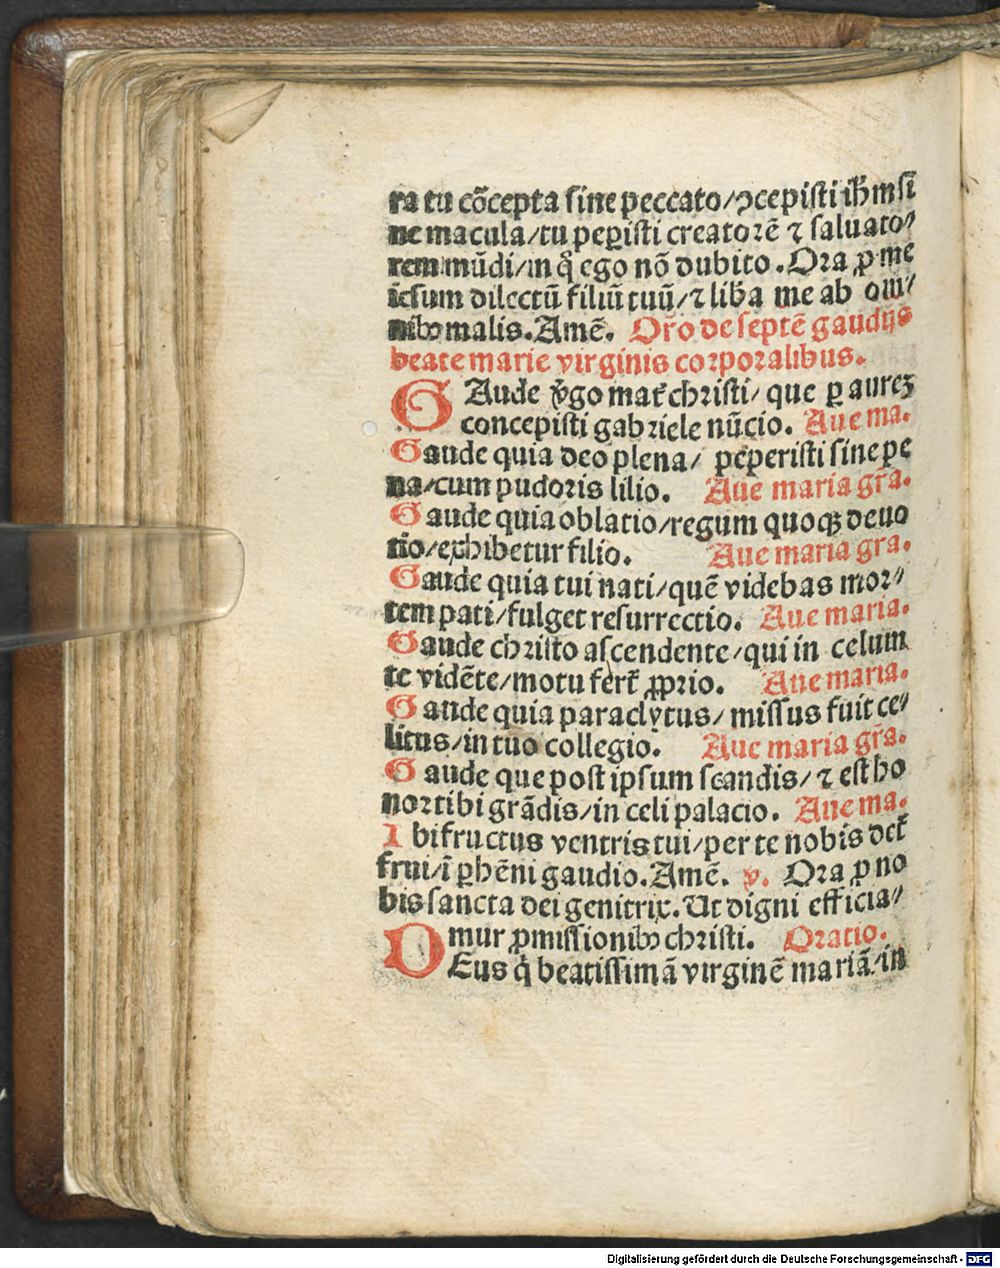 ra tu cõcepta sine peccato/ↄcepisti ih̃m si
ne macula/tu peꝑisti creatorẽ ⁊ saluato⸗
rem mũdi/in q̃ ego nõ dubito. Ora ꝓ me
iẽsum dilectũ filiũ tuũ/⁊ lib̃a me ab om⸗
nibꝰ malis. Amẽ. Or̃o de septẽ gaudijs
beate marie virginis corporalibus.
GAude v̓go mat̓ christi/ que ꝑ aureꝫ
concepisti gabriele nũcio. Aue ma.
Gaude quia deo plena/ peperisti sine pe
na/cum pudoris lilio. Aue maria gr̃a.
Gaude quia oblatio/regum quoqꝫ deuo
tio/exhibetur filio. Aue maria gra.
Gaude quia tui nati/quẽ videbas mor⸗
tem pati/fulget resurrectio. Aue maria.
Gaude christo ascendente/qui in celum
te vidẽte/motu fert̓ ꝓprio. Aue maria.
Gaude quia paraclytus/ missus fuit ce⸗
litus/in tuo collegio. Aue maria gr̃a.
Gaude que post ipsum scandis/ ⁊ est ho
nor tibi grãdis/in celi palacio. Aue ma.
Ibi fructus ventris tui/per te nobis det̓
frui/ĩ ꝑhẽni gaudio. Amẽ. v. Ora ꝓ no
bis sancta dei genitrix. Ut digni efficia⸗
mur ꝓmissionibꝰ christi. Oratio.
DEus q̇ beatissimã virginẽ mariã/in
Digitalisierung gefördert durch die Deutsche Forschungsgemeinschaft - DFG